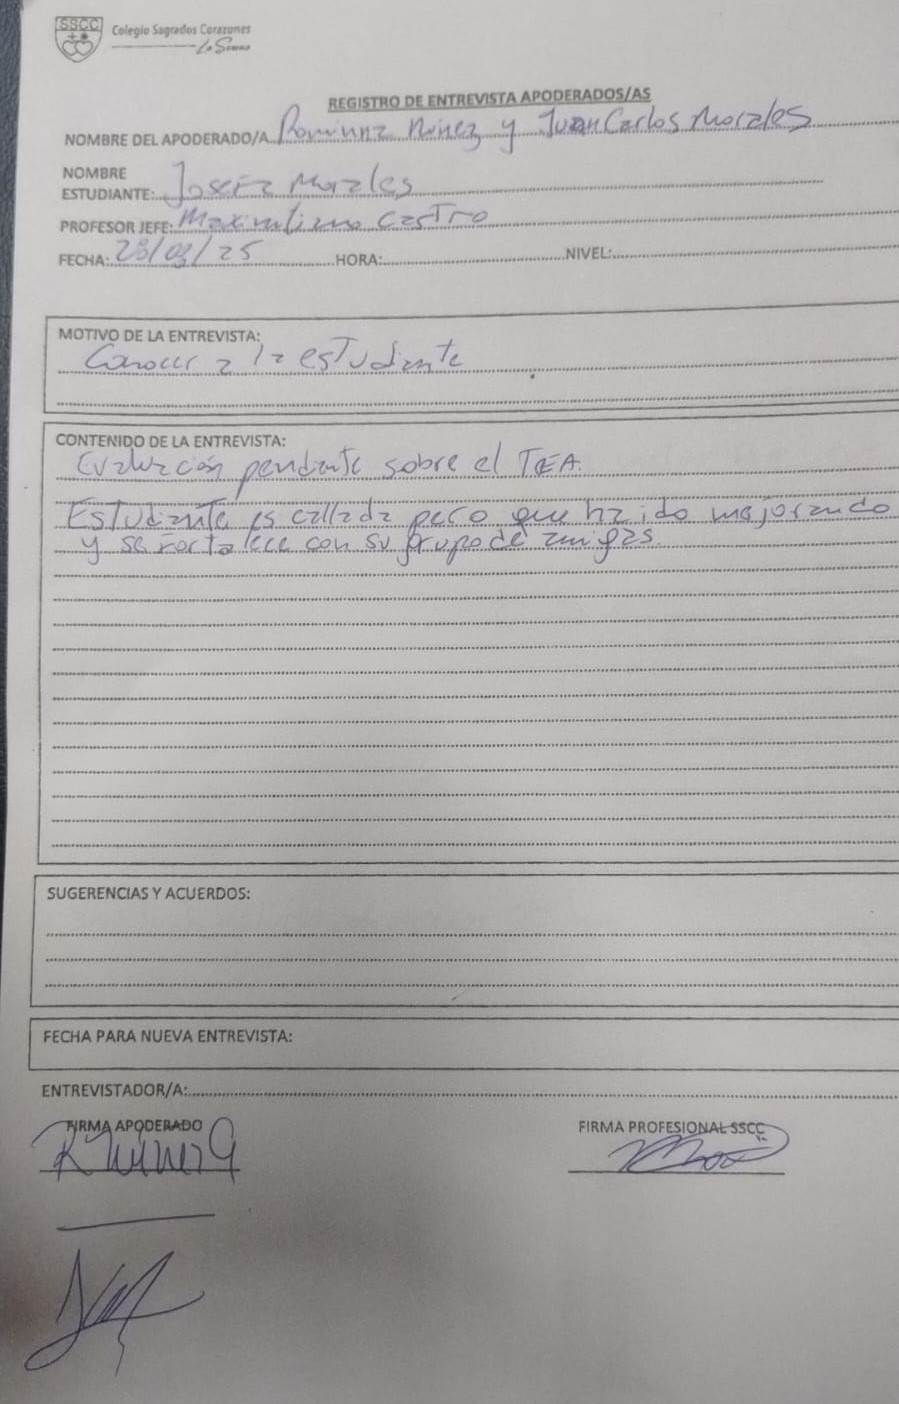 SSCC
Colegio Sagrados Corazones
REGISTRO DE ENTREVISTA APODERADOS/AS
NOMBRE DEL APODERADO/A Rominna Núñez y Juan Carlos Morales
NOMBRE
ESTUDIANTE: Josefa Morales
PROFESOR JEFE: Maximiliano Castro
FECHA: 28/03/25 HORA: NIVEL:
MOTIVO DE LA ENTREVISTA:
Conocer a la estudiante
CONTENIDO DE LA ENTREVISTA:
Evaluación pendiente sobre el TEA.
Estudiante es callada pero que ha ido mejorando
y se fortalece con su grupo de amigas.
SUGERENCIAS Y ACUERDOS:
FECHA PARA NUEVA ENTREVISTA:
ENTREVISTADOR/A:
FIRMA APODERADO FIRMA PROFESIONAL SSCC